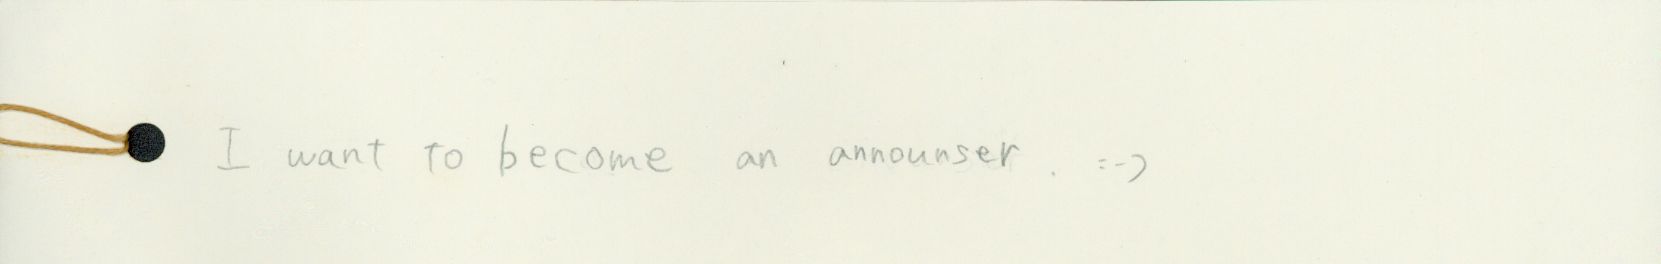 I want to become an announser. :-)